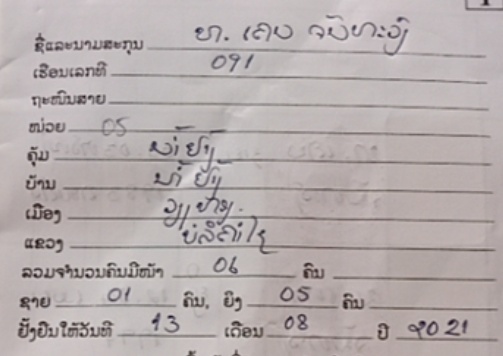 1
ຊື່ແລະນາມສະກຸນ ທ. ເຄນ ຈັນທະວົງ
ເຮືອນເລກທີ 091
ຖະໜົນສາຍ
ໜ່ວຍ 05
ຄຸ້ມ
ບ້ານ
ເມືອງ
ແຂວງ ບໍລິຄຳໄຊ
ລວມຈຳນວນຄົນມີໜ້າ 06 ຄົນ
ຊາຍ 01 ຄົນ, ຍິງ 05 ຄົນ
ຢັ້ງຢືນໃຫ້ວັນທີ 13 ເດືອນ 08 ປີ 2021